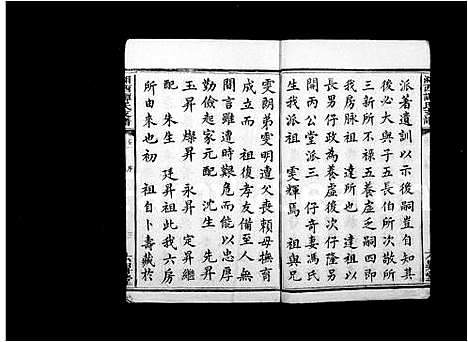 派著遺訓以示後嗣豈自計
後必大于四五長伯所次敬所
三新所不祿五養虛乏嗣四即
我房脉祖 達所也 達祖以
長男仔政為養虛後次仔隆另
開丙公堂派三 仔奇妻馮氏
生我派祖 雯輝焉 祖與兄
雯朗弟雯明遭父喪賴母撫育
成立 祖復孝友備至人無
間言雖遭時艱危而能以忠厚
勤儉起家元配 沈生 先昇
玉昇 燦昇 永昇 定昇繼
配 朱生 廷昇祖此我六房
所由來也初 祖自卜壽藏於